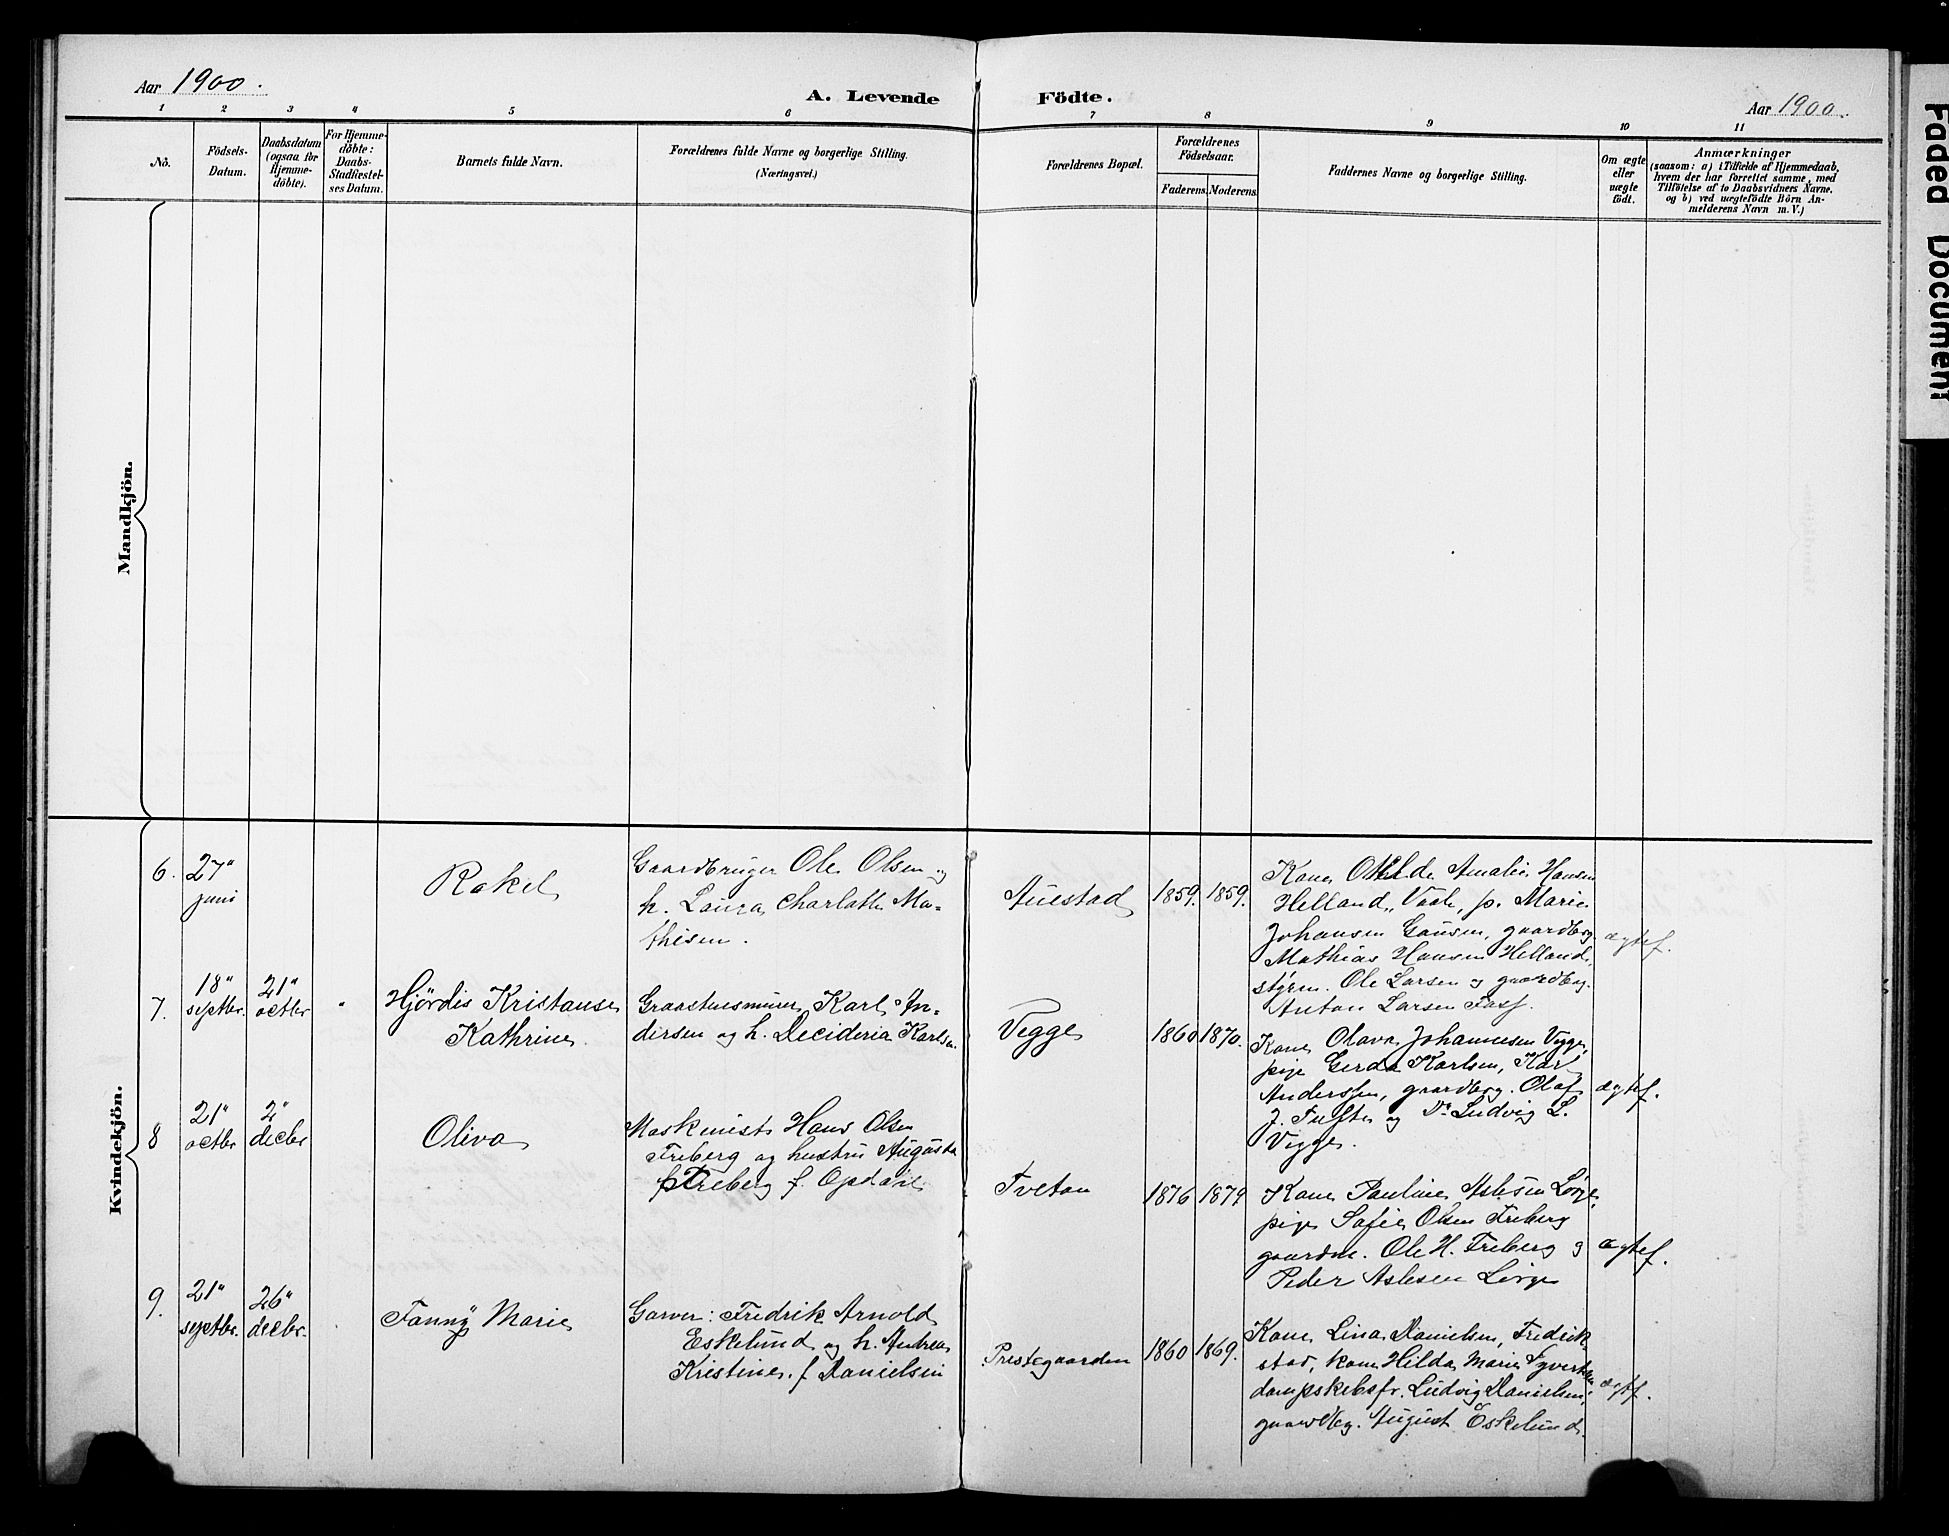 Aar 1900.
A. Levende Födte.
Aar 1900.
1 2 3 4 5 6 7 8 9 10 11
No.
Födsels-
Datum.
Daabsdatum
(ogsaa for
Hjemme-
döbte).
For Hjemme-
döbte:
Daabs-
Stadfæstel-
ses Datum.
Barnets fulde Navn.
Forældrenes fulde Navne og borgerlige Stilling.
(Næringsvei.)
Forældrenes Bopæl.
Forældrenes
Födselsaar.
Faderens. Moderens.
Faddernes Navne og borgerlige Stilling.
Om ægte
eller
uægte
födt.
Anmærkninger
(saasom: a) i Tilfælde af Hjemmedaab,
hvem der har forrettet samme, med
Tilföielse af to Daabsvidners Navne,
og b) ved uægtefödte Börn An-
melderens Navn m. V.)
Mandkjön.
Kvindekjön.
6.
27"
juni
Rakel
Gaardbruger Ole Olsen og
h. Laura Charlotte Ma-
thisen.
Auestad
1859. 1859.
Kone Othilde Amalie Hansen
Helland, Vaale, p. Marie
Johansen Gausen, gaardbrg
Mathias Hansen Helland,
styrm. Ole Larsen og gaardbrg.
Anton Larsen
ægtef.
7.
18"
septbr.
21"
octbr
"
Hjördis Kristanse
Kathrine
Karl An-
dersen og h. Decideria Karlsen
Vegge
1860 1870.
Kone Olava Johannesen Vegge,
pige Gerda Karlsen, Karl
Anderssen, gaardbrg. Olaf
J. Tufte og Do Ludvig L.
Vegge.
ægtef.
8
21"
octbr
2"
decbr
Oliva
Maskinist Hans Olsen
Freberg og hustru Augusta
Freberg f. Opdal
Tveten
1876 1879
Kone Pauline Aslesen Lørge
pige Sofie Olsen Freberg
gaardm. Ole H. Freberg og
Peder Aslesen Lørge
ægtef.
9.
21"
septbr.
26"
decbr.
Fanny Marie
Garver: Fredrik Arnold
Eskelund og h. Andrea
Kristine f. Danielsen
Prestegaarden
1860 1869.
Kone Lina Danielsen, Fredrik
stad, kone Hilda Marie Syvertsen
dampskibsfr. Ludvig Danielsen,
gaardbrg. August Eskelund.
ægtf.
Faded Document